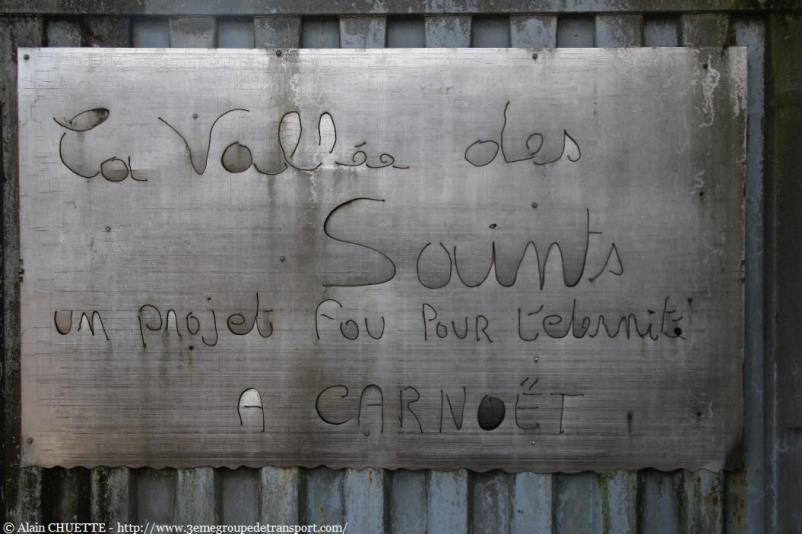 La Vallée des
Saints
un projet fou POUR L'éternité
A CARNOËT
© Alain CHUETTE - http://www.3emegroupedetransport.com/